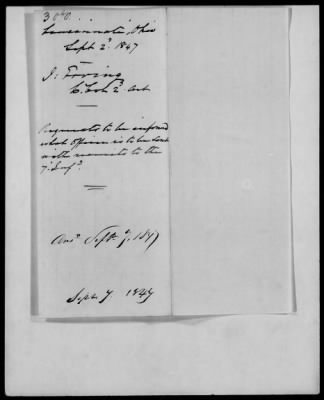 Cincinnati, Ohio
Sept 2d. 1847
J:
Requests to be informed
what Officer is to be sent
with recruits to the
7: Inf.
Ansd Sept. 7, 1847
Sept 7 1847